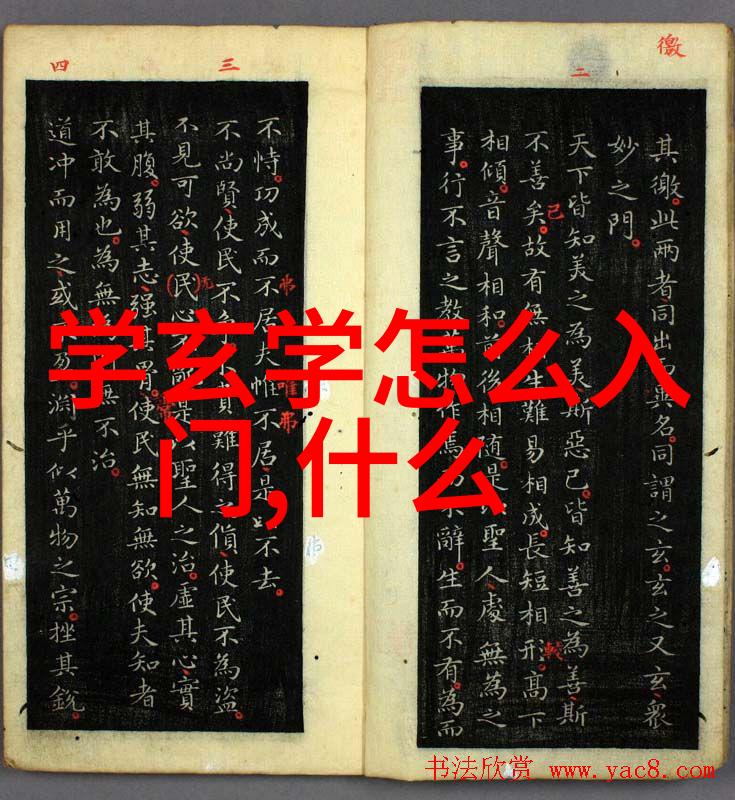 徼
二
其徼。此兩者同出而異名。同謂之玄。玄之又玄。衆
妙之門。
天下皆知美之為美斯惡已。皆知善之為善斯
不善矣。故有無相生難易相成。長短相形。髙下
已
較
相傾。音聲相和。前後相隨。是以聖人處無為之
事。行不言之教。萬物作焉而不辭。生而不有。為而
三
四
不恃。功成而不居。夫惟不居。是以不去。
弗
唯弗
不尚賢使民不爭不貴難得之貨使民不為盜。
不見可欲使(民)心不亂是以聖人之治。虛其心實
无
其腹。弱其志强其骨。使民無知無欲。使夫知者
不敢為也。為無為則無不治。
道冲而用之或不盈。淵乎似萬物之宗。挫其銳。
学玄学怎么入
门,什么
书法欣赏 www.yac8.com